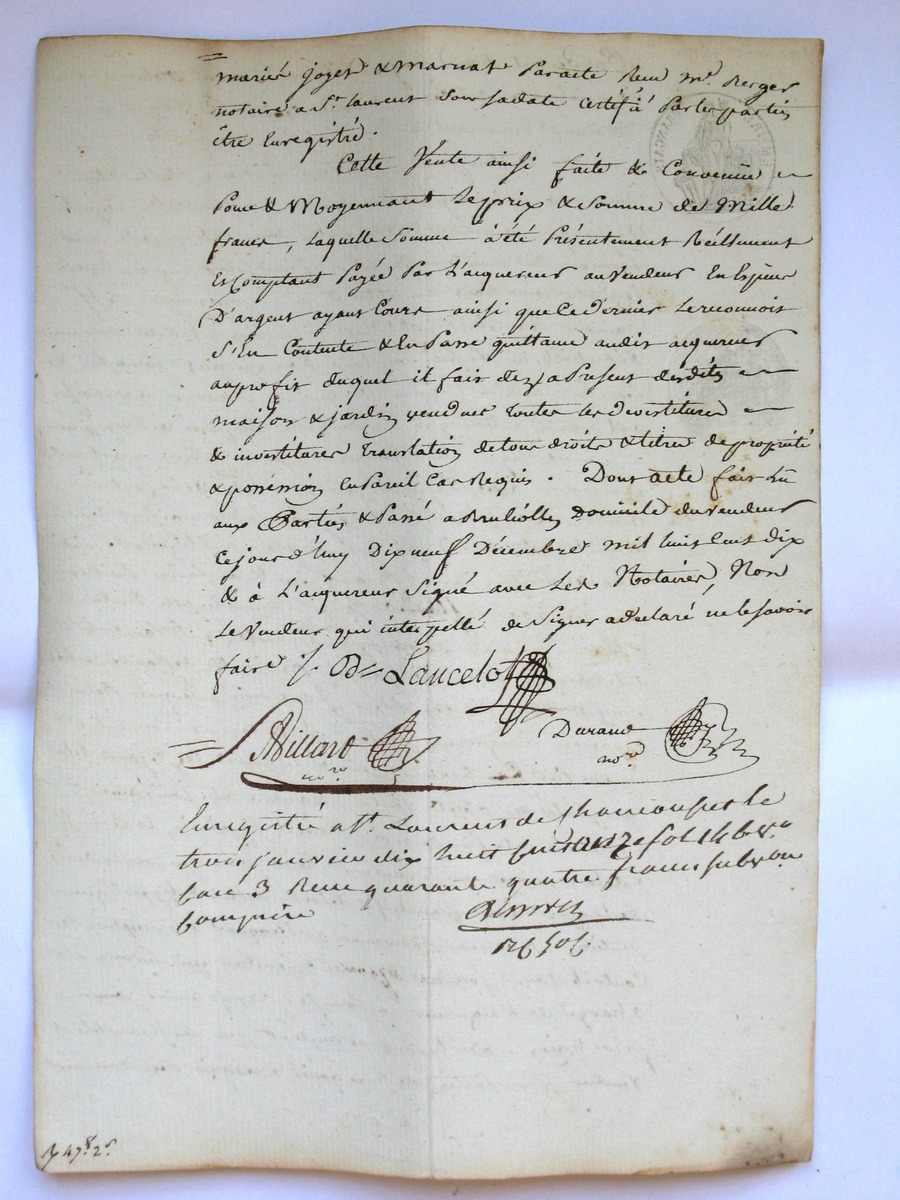 mariés joyet & marnat Paracte Reçu me Berger
notaire a St. Laurent Sous sadate certifié Parlesparties
être Enregistré.
Cette Vente ainsi faite & Convenüe
Pour & Moyennant Leprix & Somme de Mille
francs, Laquelle Somme à été Présentement Réèllement
Et Comptant Payée Par L'acquereur auVendeur En Espèces
D'argent ayant Cours ainsi que Ce Dernier Lereconnois
S'En Contente & En Passe quittance audit acquereur
auprofit duquel il fait dez aPresent desdits
maison & jardin vendues toutes les devestitures
& investitures translation detous droits & titres de propriété
& possession enPareil Cas Requis. Dont acte fait Lu
aux Parties & Passé a Domicile duvendeur
Cejourd'huy Dix neuf Décembre mil huit Cent dix
& à L'acquereur Signé avec Les Notaires, Non
Le Vendeur qui interpellé de Signer adeclaré ne le savoir
faire ./. B= Lancelot
Durand
Billard nore
nore
Enregistré a St. Laurent de Chamousset le
trois janvier dix huit cent onze fol 146 vo
Case 3 Reçu quarante quatre francs subvon
Comprise